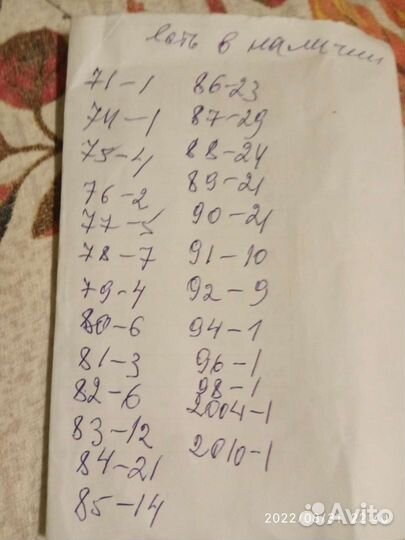 есть в наличии
71-1
74-1
75-4
76-2
77-5
78-7
79-4
80-6
81-3
82-6
83-12
84-21
85-14
86-23
87-29
88-24
89-21
90-21
91-10
92-9
94-1
96-1
98-1
2004-1
2010-1
Avito